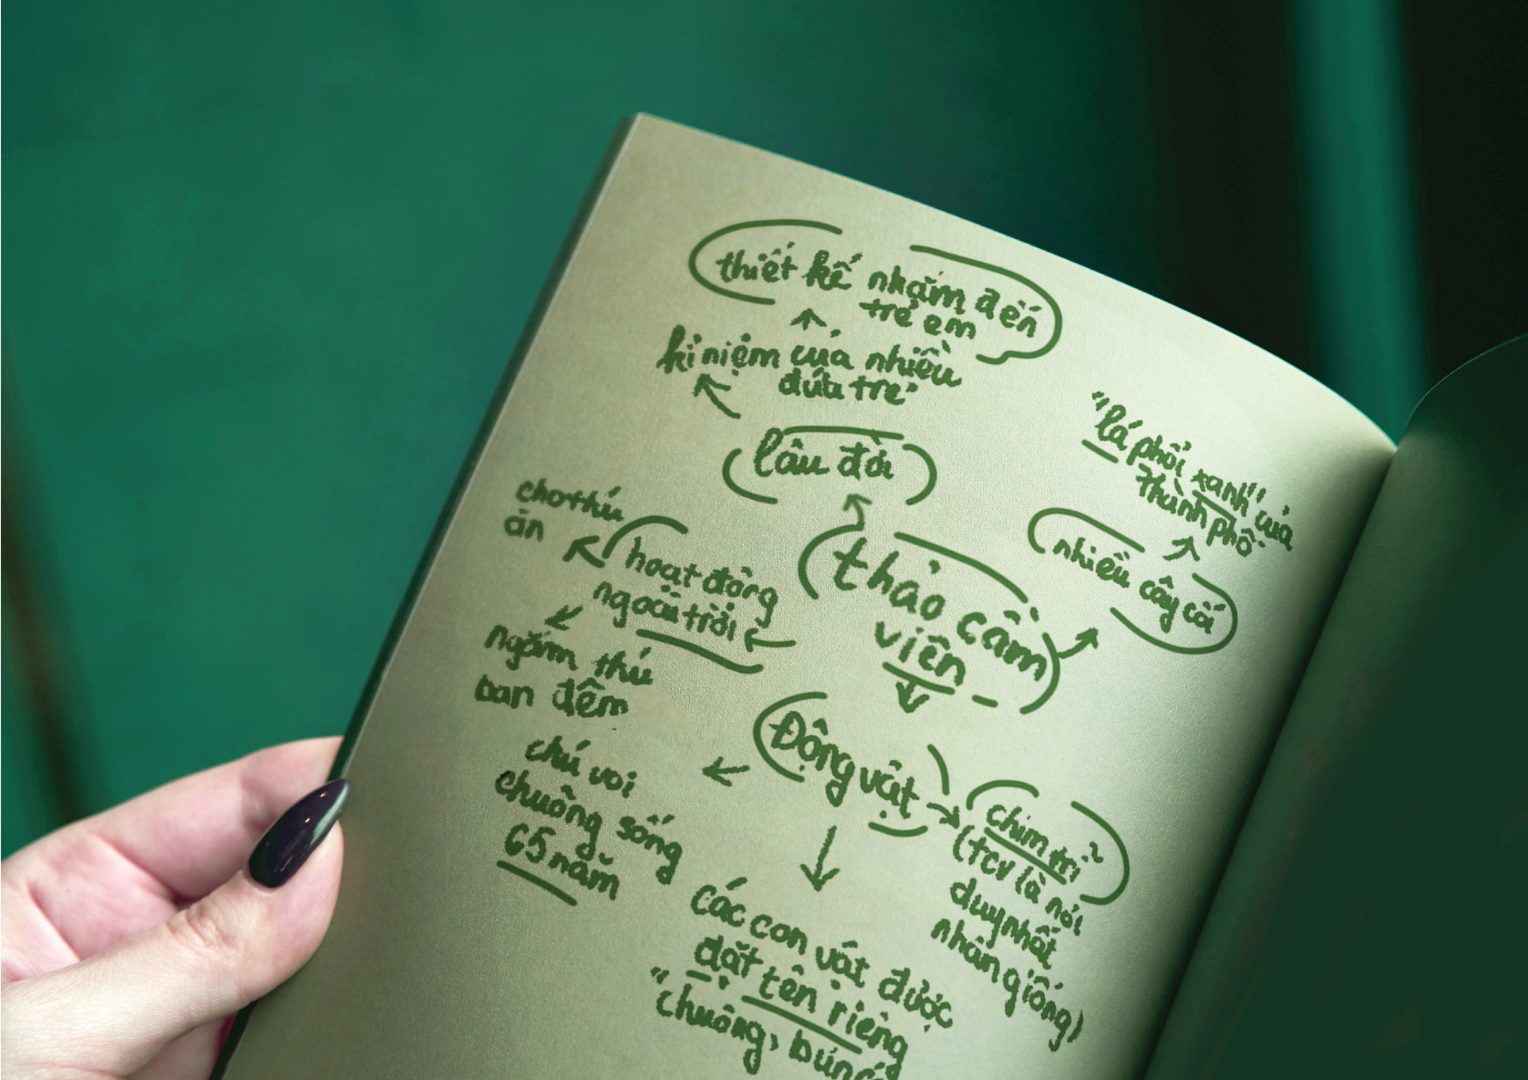 thiết kế nhắm đến
trẻ em
kỉ niệm của nhiều
đứa trẻ
lâu đài
"lá phổi xanh" của
thành phố
nhiều cây cối
cho thú
ăn
hoạt động
ngoài trời
thảo cầm
viên
ngắm thú
ban đêm
Động vật
chú voi
chuông sống
65 năm
chim trĩ
(tcv là nơi
duy nhất
nhân giống)
các con vật được
đặt tên riêng
"chuông, bún